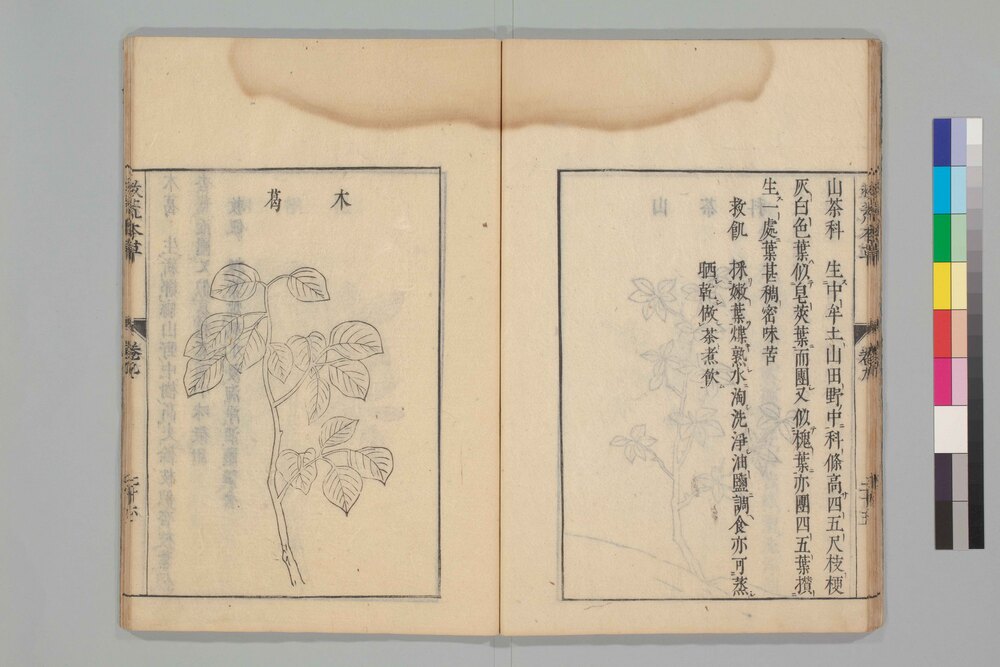 山茶科　生中牟土山田野中科條高四五尺枝梗
灰白色葉似皂莢葉而團又似槐葉亦團四五葉攢
生一處葉甚稠密味苦
救飢　採嫩葉煠熟水淘洗淨油鹽調食亦可蒸
晒乾做茶煮飲
木葛
救荒本草
卷九
二十六